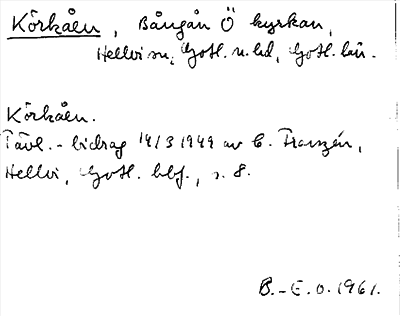 Körkåen, Bångån Ö kyrkan,
Hellvi sn, Gotl. n. hd, Gotl. län.
Körkåen.
Tävl.-bidrag 14/3 1949 av C. Franzén,
Hellvi, Gotl. hbf., s. 8.
B.-E.O. 1961.